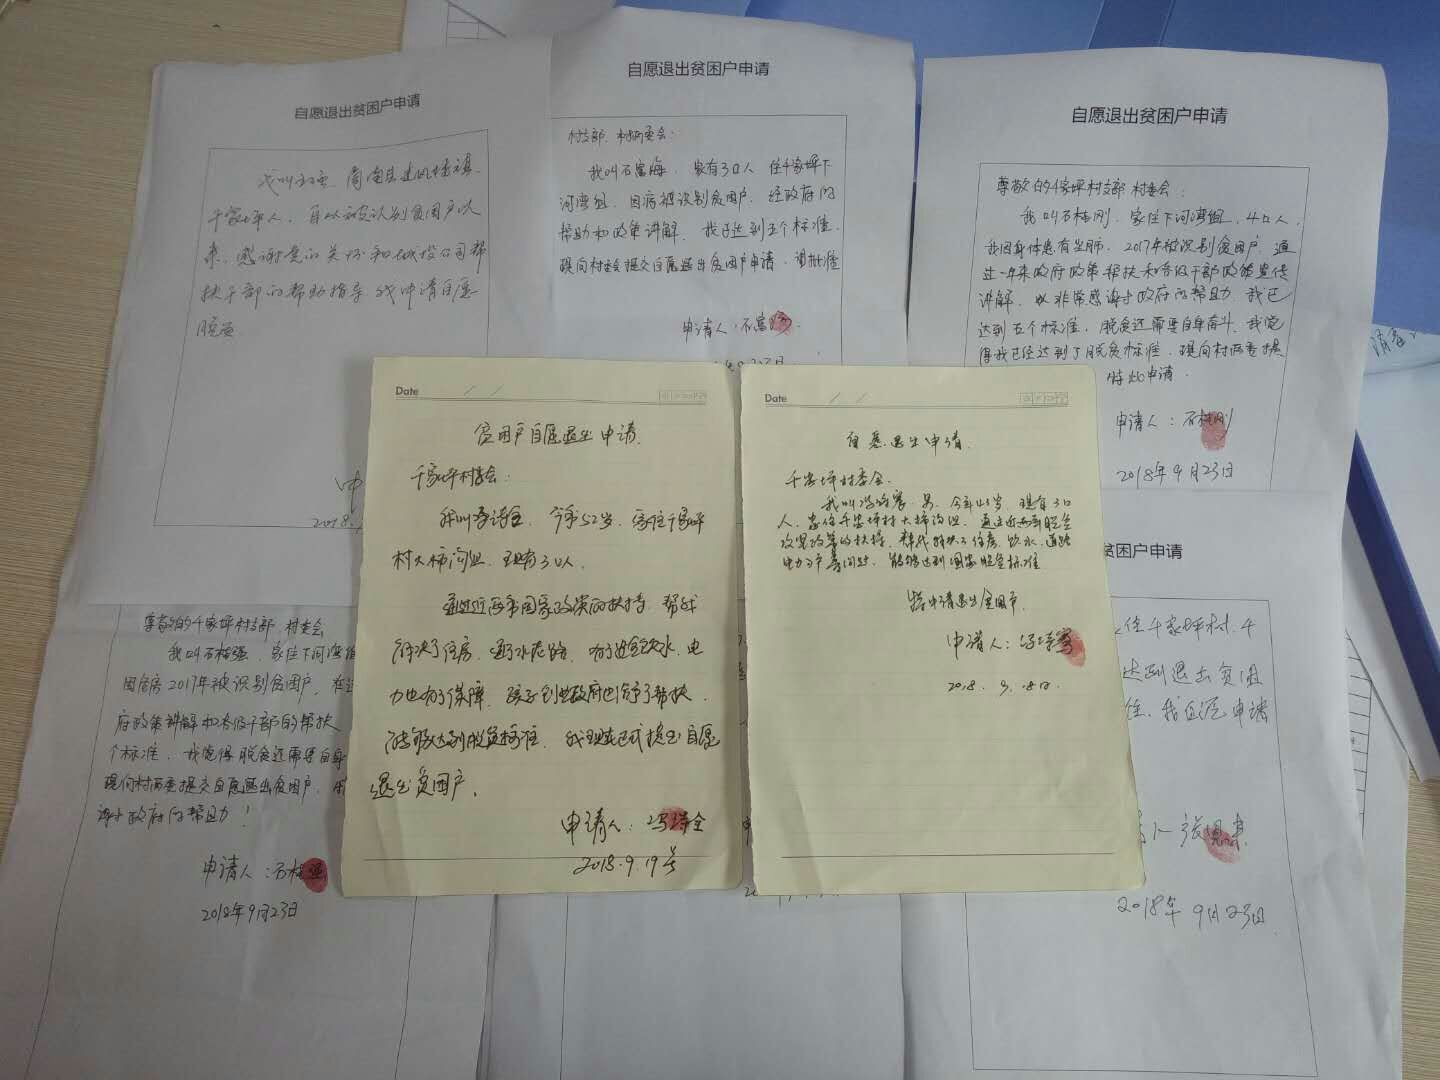 自愿退出贫困户申请
千家坪人，自从被认识别贫困户以
来，感谢党的关怀和城投公司帮
扶干部的帮助指导 我申请自愿
脱贫
2018.
自愿退出贫困户申请
村支部、村委会：
我叫石富海，家有3口人 住千家坪下
河湾组，因病被识别贫困户，经政府的
帮助和政策讲解，我已达到五个标准，
现向村委会提交自愿退出贫困户申请，请批准
申请人：石富海
自愿退出贫困户申请
尊敬的千家坪村支部 村委会：
我叫石桂刚，家住下河湾组，4口人，
我因身体患有尘肺，2017年被识别贫困户，通
过一年来政府政策帮扶和各级干部政策宣传
讲解，
达到五个标准，脱贫还需要自身奋斗，我觉
得我已经达到了脱贫标准，现向村两委提
特此申请
申请人：石桂刚
2018年9月23日
Date / /
贫困户自愿退出申请
千家坪村委会：
今年52岁，家住千家坪
村大柿沟组，现有3口人，
通过近两年国家政策的扶持，帮我
解决了住房，通了水泥路，有了安全饮水，电
力也有了保障，孩子创业政府也给予了帮扶，
能够达到脱贫标准，我现在正式提出自愿
退出贫困户。
申请人：冯祥全
2018.9.19号
Date / /
自愿退出申请
千家坪村委会
男，今年43岁，现有3口
人，家住千家坪村大柿沟组，通过近两年脱贫
攻坚政策的扶持，帮我解决了住房、饮水、道路
电力入户等问题，能够达到国家脱贫标准
特申请退出贫困户。
申请人：
2018. 9. 18日.
尊敬的千家坪村支部 村委会
我叫石桂强，家住下河湾组
2017年被识别贫困户，在
府政策讲解和各级干部的帮扶
个标准，我觉得脱贫还需要自身
现向村两委提交自愿退出贫困户，
谢政府的帮助！
申请人：石桂强
2018年9月23日
贫困户申请
住千家坪村，千
达到退出贫困
我自愿申请
2018年9月23日